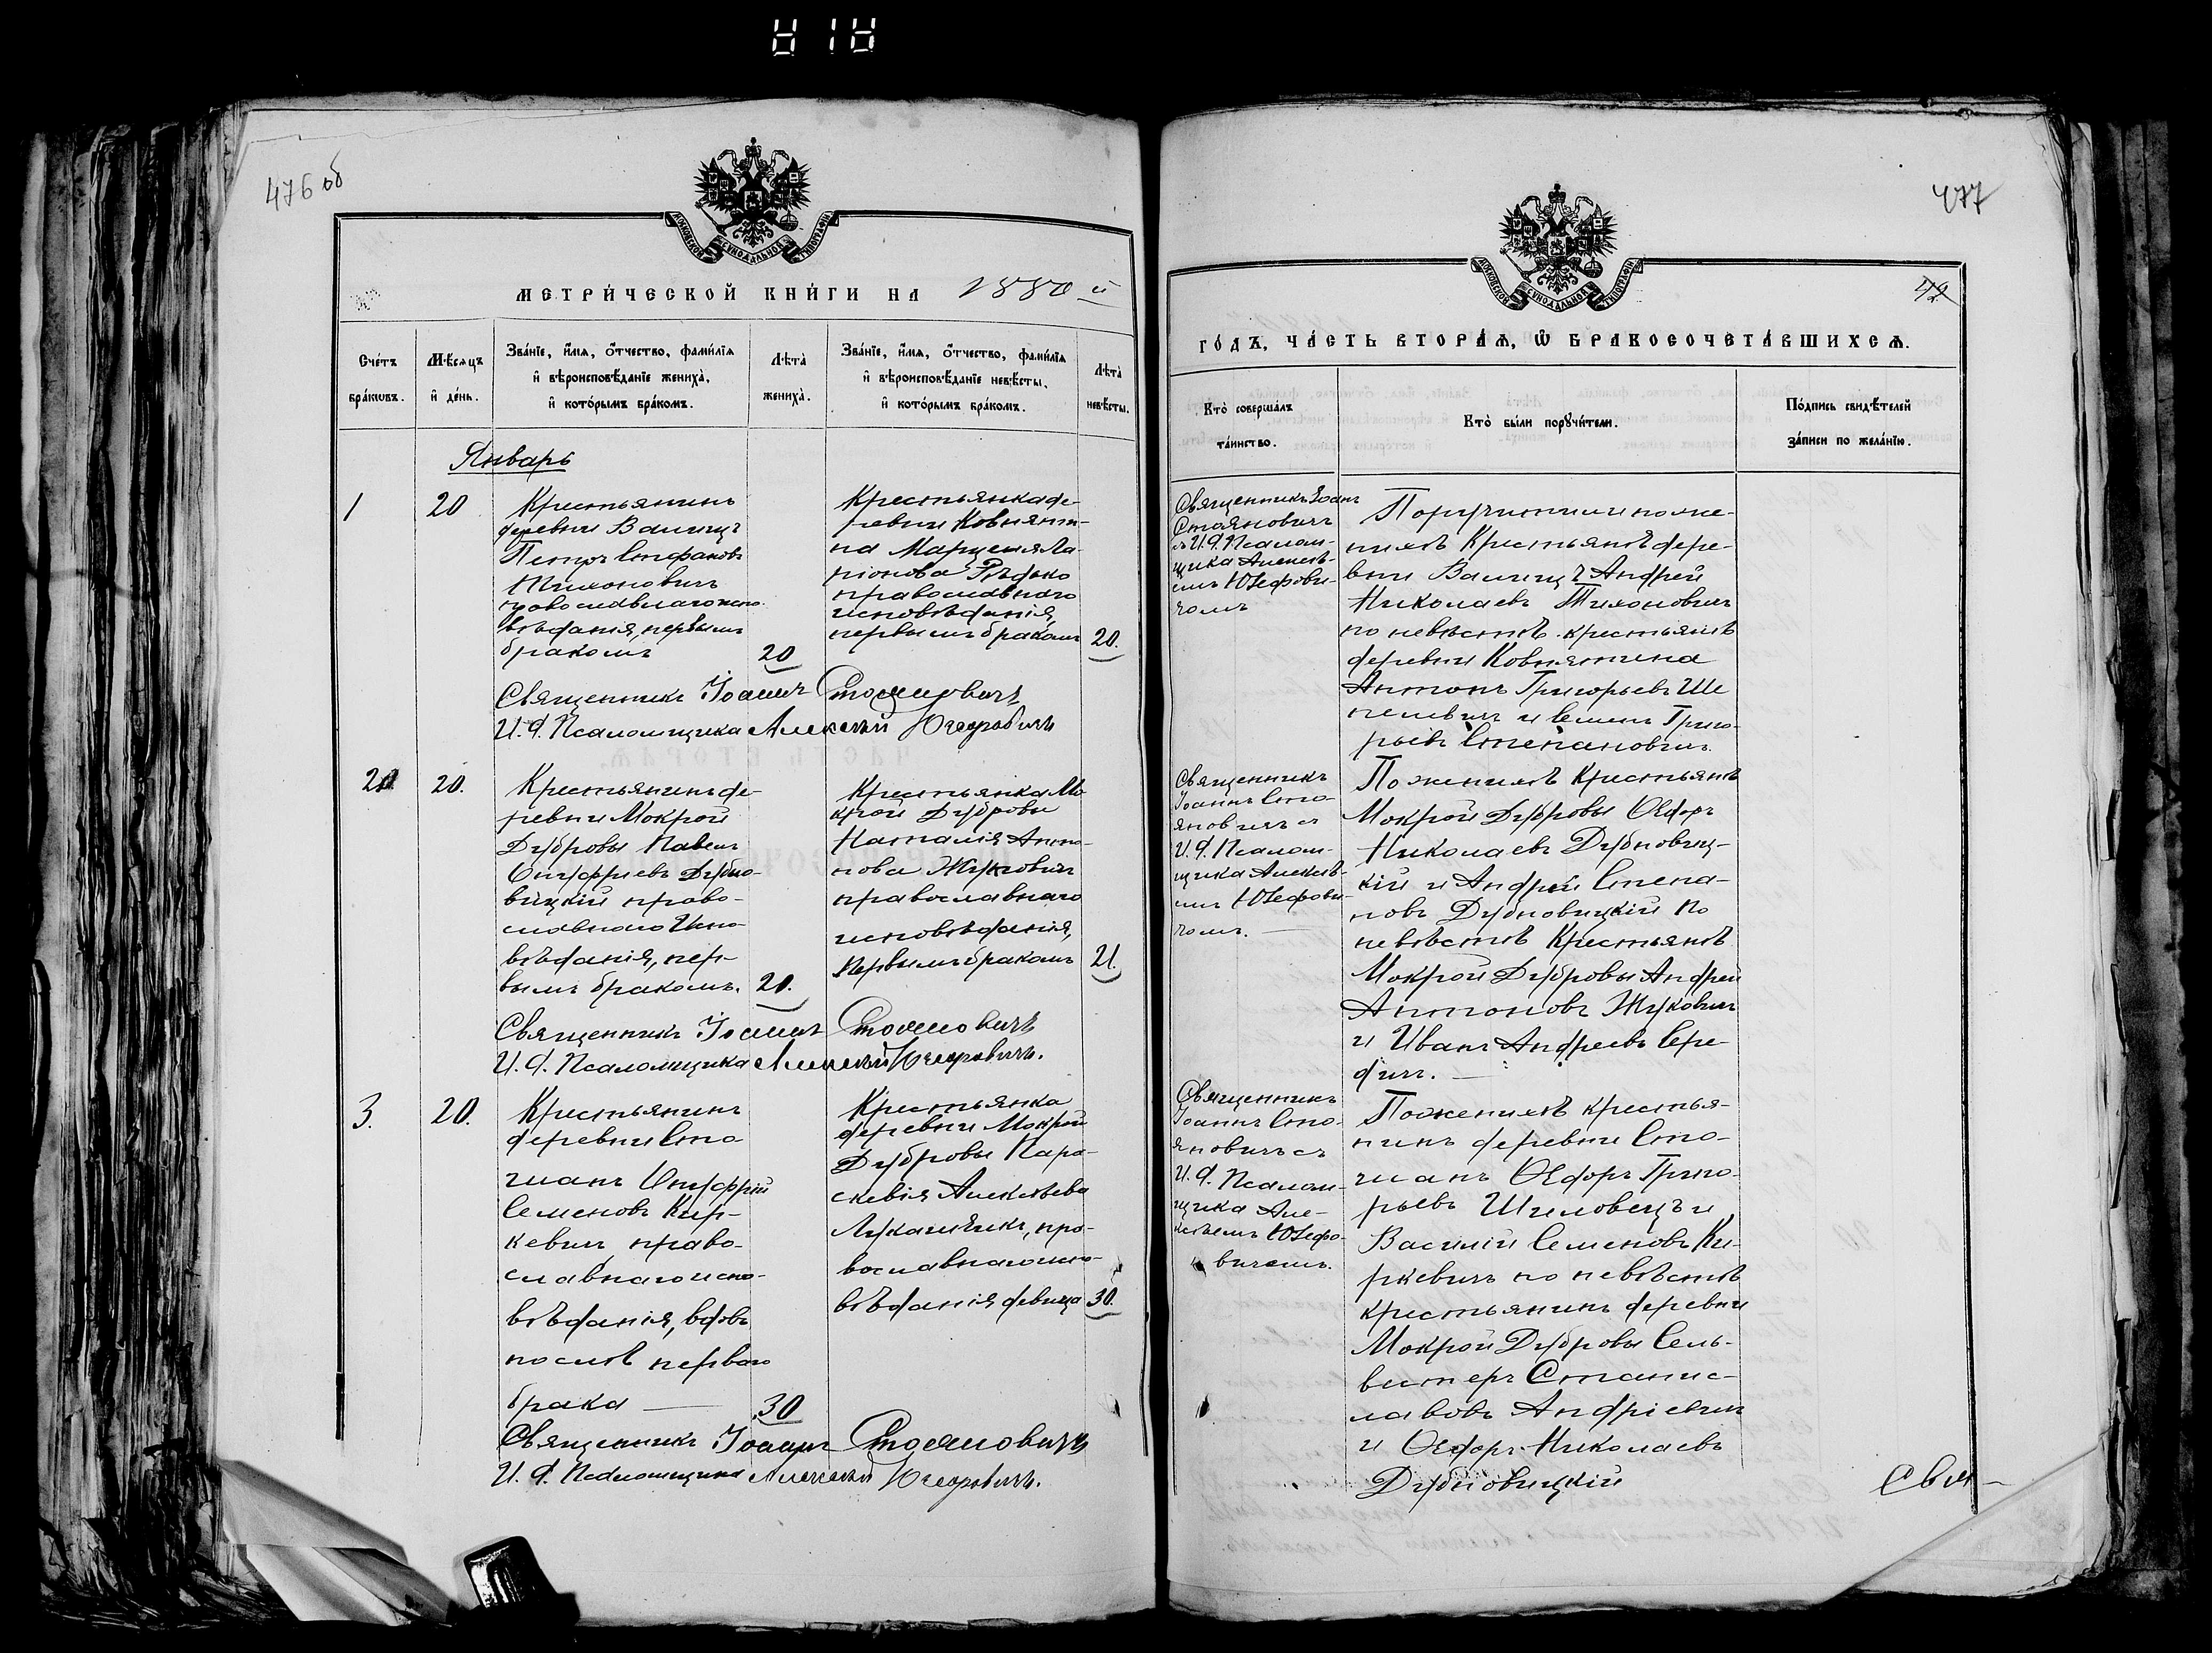 476 об
477
42
МОСКОВСКОЙ СУНОДАЛЬНОЙ ТИПОГРАФІИ
МЕТРИЧЕСКОЙ КНИГИ НА 1880 й
Счетъ браковъ.
Мѣсяцъ и день.
Званіе, имя, отчество, фамилія
и вѣроисповѣданіе жениха,
и которымъ бракомъ.
Лѣта
жениха.
Званіе, имя, отчество, фамилія
и вѣроисповѣданіе невѣсты,
и которымъ бракомъ.
Лѣта
невѣсты.
Январь
1
20
Крестьянинъ
деревни Валищъ
Петръ Стефановъ
Тихоновичъ
православнаго испо-
вѣданія, первымъ
бракомъ
20
Крестьянка де-
ревни Ковняти-
на Марцеля Ла-
ріонова Рѣдько
православнаго
исповѣданія,
первымъ бракомъ
20.
Священникъ Іоаннъ Стояновичъ
И. д. Псаломщика Алексѣй Юзефовичъ
2
20.
Крестьянинъ де-
ревни Мокрой
Дубровы Павелъ
Онуфріевъ Дубно-
вицкій право-
славнаго Испо-
вѣданія, пер-
вымъ бракомъ.
21.
Крестьянка Мо-
крой Дубровы
Наталія Анто-
нова Жуковичъ
православнаго
исповѣданія,
Первымъ бракомъ
21.
Священникъ Іоаннъ Стояновичъ
И. д. Псаломщика Алексѣй Юзефовичъ.
3.
20.
Крестьянинъ
деревни Сто-
шанъ Онуфрій
Семеновъ Кир-
кевичъ право-
славнаго испо-
вѣданія, вдовъ
послѣ перваго
брака
30
Крестьянка
деревни Мокрой
Дубровы Пара-
скевія Алексѣева
Лукашикъ, пра-
вославнаго испо-
вѣданія девица
30.
Священникъ Іоаннъ Стояновичъ
И. д. Псаломщика Алексѣй Юзефовичъ.
МОСКОВСКОЙ СУНОДАЛЬНОЙ ТИПОГРАФІИ
ГОДЪ, ЧАСТЬ ВТОРАЯ, Ѡ БРАКОСОЧЕТАВШИХСЯ.
Кто совершалъ
таинство.
Кто были поручители.
Подпись свидѣтелей
записи по желанію.
Священникъ Іоаннъ
Стояновичъ
съ И. д. Псалом-
щика Алексѣ-
емъ Юзефови-
чомъ
Поручители по же-
нихѣ Крестьянѣ дере-
вни Валищъ Андрей
Николаевъ Тихоновичъ
по невѣстѣ крестьянѣ
деревни Ковнятина
Антонъ Григорьевъ Ше
пелевичъ и Семенъ Григо-
рьевъ Степановичъ.
Священникъ
Іоаннъ Сто-
яновичъ съ
И. д. Псалом-
щика Алексѣ-
емъ Юзефови-
чомъ.
По женихѣ Крестьянѣ
Мокрой Дубровы Ѳедоръ
Николаевъ Дубновиц-
кій и Андрей Степа-
новъ Дубновицкій По
невѣстѣ Крестьянѣ
Мокрой Дубровы Андрей
Антоновъ Жуковичъ
и Иванъ Андреевъ Сере-
дичъ.
Священникъ
Іоаннъ Сто-
яновичъ съ
И. д. Псалом-
щика Але-
ксѣемъ Юзефо-
вичемъ.
По женихѣ крестья-
нинъ деревни Сто-
шанъ Ѳедоръ Григо-
рьевъ Шиловецъ и
Василій Семеновъ Ки-
ркевичъ по невѣстѣ
крестьянинъ деревни
Мокрой Дубровы Сель-
вестеръ Станис-
лавовъ Андріевичъ
и Ѳедоръ Николаевъ
Дубновицкій
Свя-